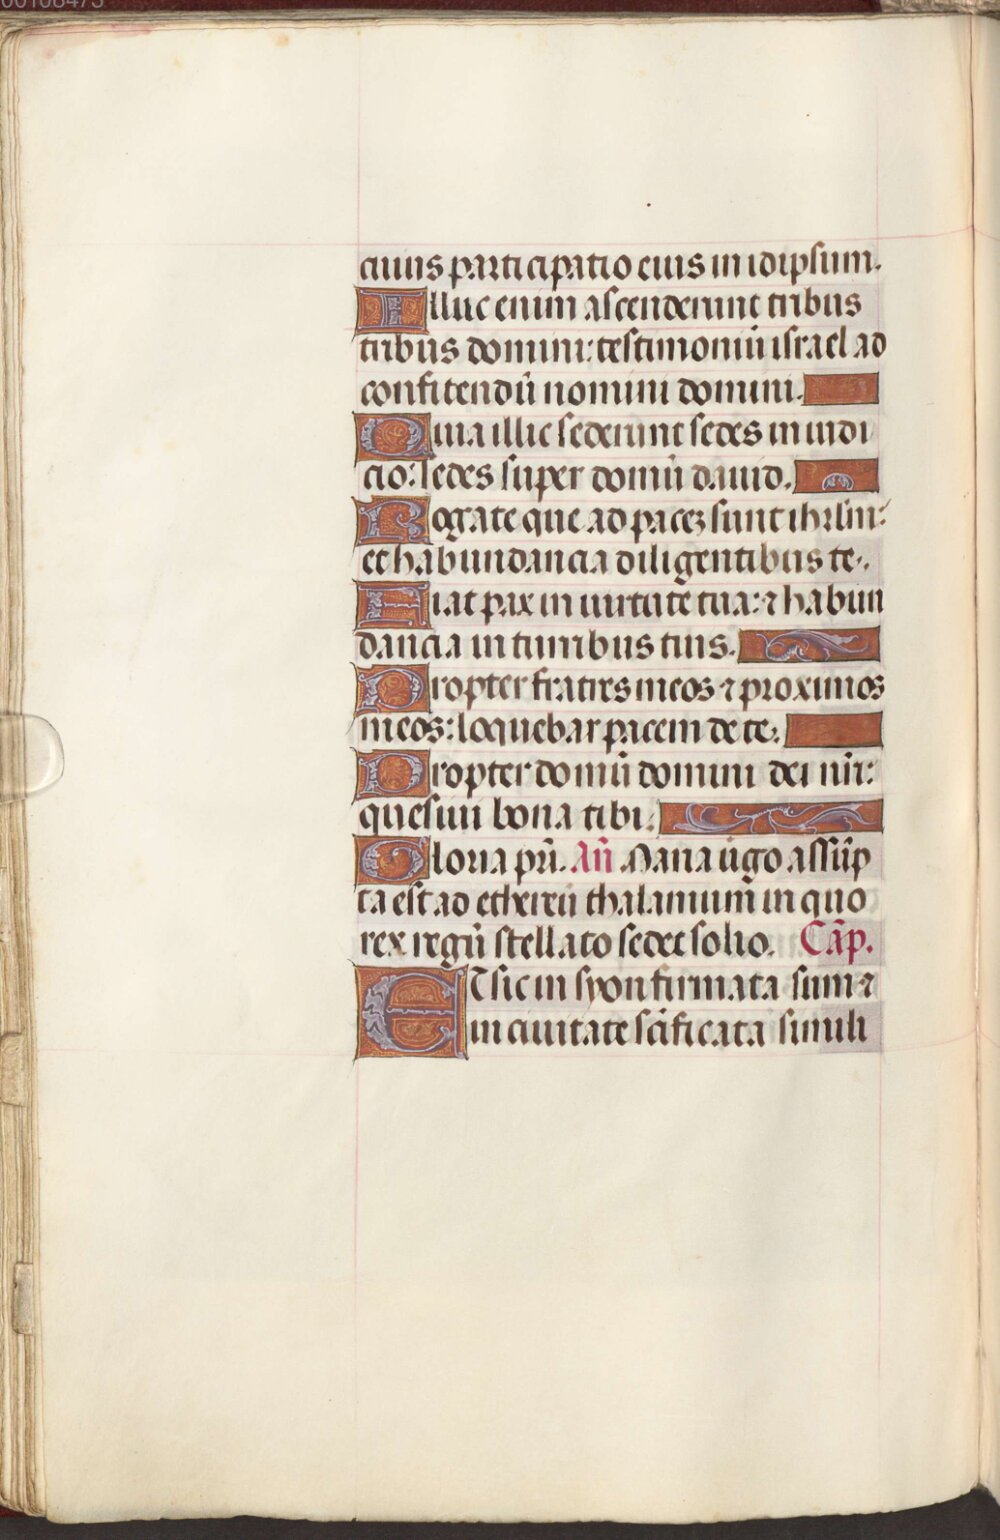 cuius participatio eius in idipsum.
Illuc enim ascenderunt tribus
tribus domini: testimoniū israel ad
confitendū nomini domini.
Quia illic sederunt sedes in iudi
cio: sedes super domū dauid.
Rogate que ad pacez sunt ihrl'm:
et habundancia diligentibus te.
Fiat pax in uirtute tua: ⁊ habun
dancia in turribus tuis.
Propter fratres meos ⁊ proximos
meos: loquebar pacem de te.
Propter domū domini dei nr̄i:
quesiui bona tibi.
Gloria pr̄i. Añ. Maria uigo assūp
ta est ad ethereū thalamum in quo
rex regū stellato sedet solio. Cāp.
ET sic in syon firmata sum ⁊
in ciuitate scīficata simili